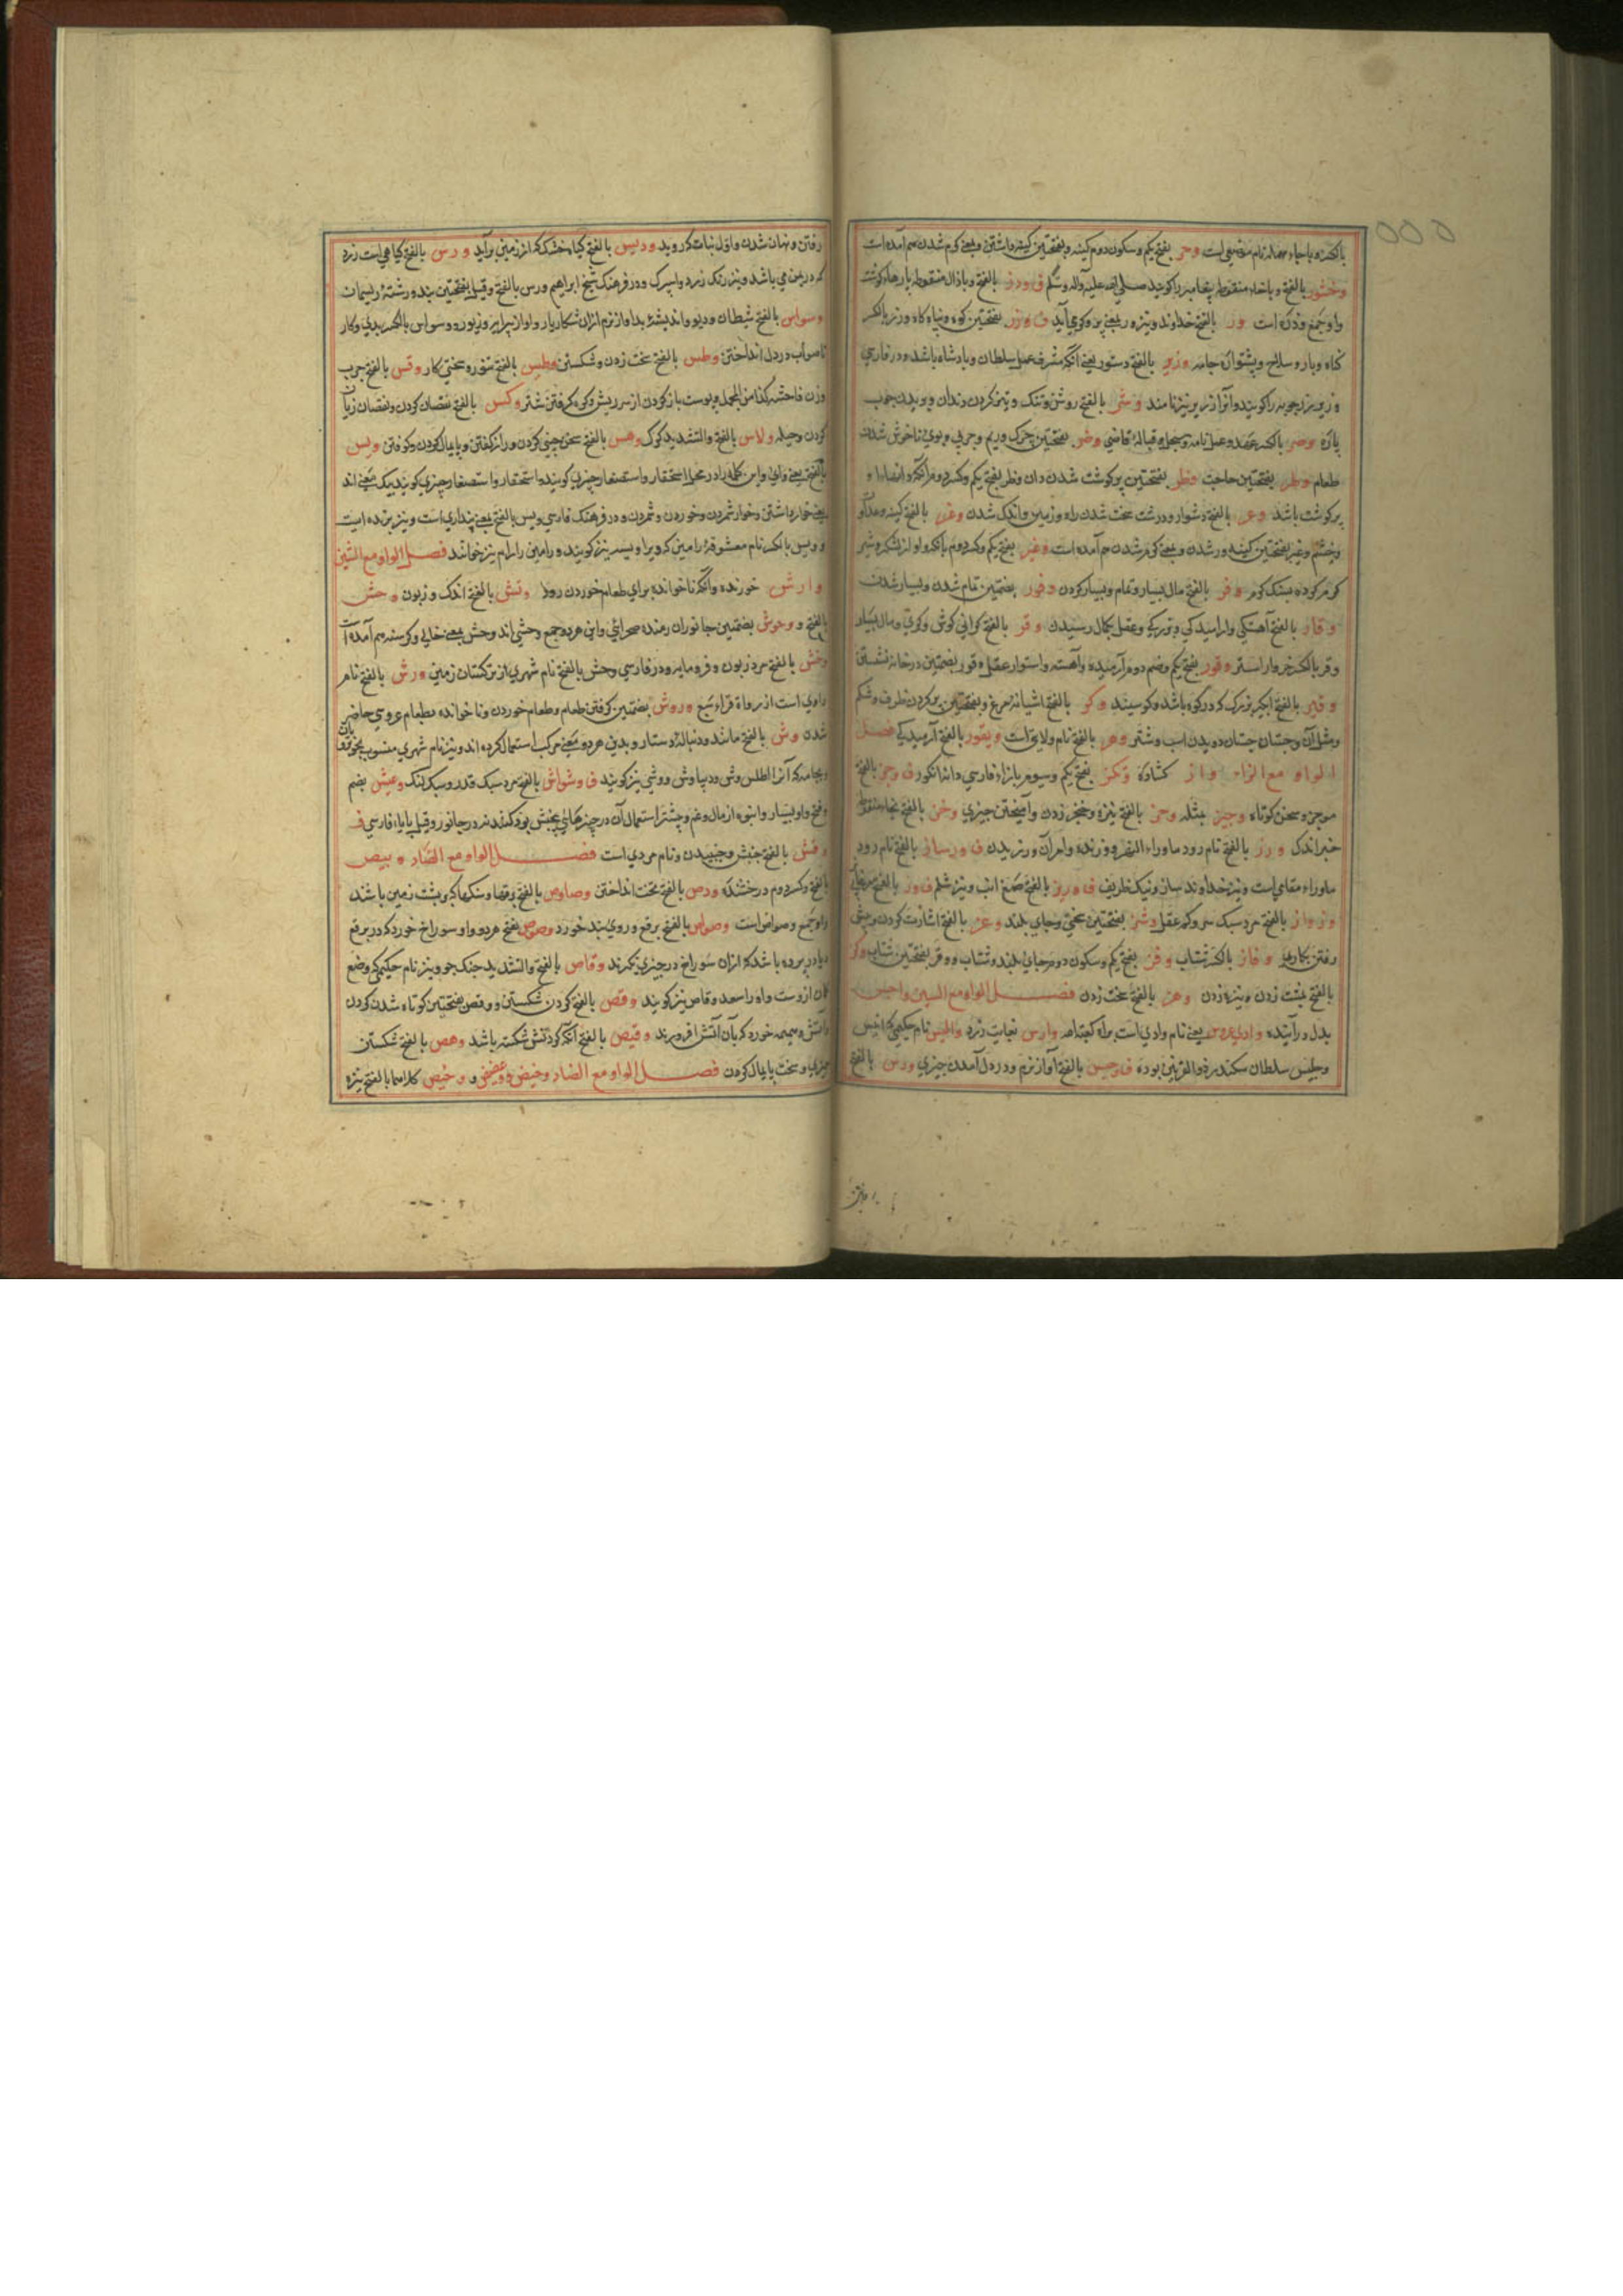 بالکسر و با حاء مهمله نام موضعی است وحر بفتح یکم و سکون دوم کینه و بفتحتین کینه داشتن و بمعنی کرم شدن هم آمده است
وخشور بالفتح و با خاء منقوطه پیغامبر را کویند صلی الله علیه و آله وسلم ف وذر بالفتح و با ذال منقوطه پارهاء کوشت
واو جمع وذره است ور بالفتح خداوند و نیزه
کناه و بار و سلاح و پشتواره جامه وزیر بالفتح دستور یعنی آنکه مشرف عمل سلطان و پادشاه باشد و در فارسی
وزیر زردچوبه را کویند و آنرا زریر نیز نامند وشر بالفتح روشن و تنک و تیز کردن دندان و بریدن چوب
پاره وصر بالکسر عهد و عمل نامه و سجل و قباله قاضی وضر بفتحتین چرک و ریم و چربی و بوی ناخوش شدن
طعام وطر بفتحتین حاجت وظر بفتحتین پر کوشت شدن ران وظر بفتح یکم و کسر دوم مرد آنکه
پر کوشت باشد وعر بالفتح دشوار و درشت سخت شدن راه و زمین و اندک شدن وغر بالفتح کینه
وخشم وغر بفتحتین کینه ور شدن و بمعنی کرم شدن هم آمده است وغیر بفتح یکم و کسر دوم
کرم کرده بسنک کرم وفر بالفتح مال بسیار و تمام و بسیار کردن وفور بضمتین تمام شدن و بسیار شدن
وقار بالفتح آهستکی و آرامیدکی و بزرکی و عقل بکمال رسیدن وقر بالفتح کرانی کوش و کری و مال بسیار
وقر بالکسر خروار استر وقور بفتح یکم و ضم دوم آرمیده و آهسته و استوار عقل وقور بضمتین در خانه نشستن
وقیر بالفتح آبکیر بزرک که در کوه باشد و کوسپند وکر بالفتح آشیانه مرغ و بفتحتین پر کردن ظرف و شکم
و مثل آن و جستان جستان دویدن اسب و شتر وهر بالفتح نام ولایتی است ویقور بالفتح آرمیدکی فصل
الواو مع الزاء واز کشاده وتکز بفتح یکم و سیوم بزاء فارسی دانه انکور ف وجز بالفتح
موجز و سخن کوتاه وجیز مثله وخز بالفتح نیزه و خنجر زدن و آمیختن چیزی وخز بالفتح بخاء منقوطه
خبر اندک ورز بالفتح نام رود ماوراء النهر و ورزنده و امر آن ورزیدن ف ورساز بالفتح نام رود
ماوراء مقامی است و نیز خداوند ساز و نیک ظریف ف وریز بالفتح صمغ
وزواز بالفتح مرد سبک سر و کم عقل وشز بفتحتین سختی و جای بلند وعز بالفتح اشارت کردن و پیش
رفتن بکاری وفاز بالکسر شتاب وفز بفتح یکم و سکون دوم جای بلند و شتاب و وفز بفتحتین شتاب وکز
بالفتح بمشت زدن و نیزه زدن وهز بالفتح سخت زدن فصل الواو مع السین واجس
بدل درآینده وادی عروس یعنی نام وادی است براه کعبة الله وارس بغایت زرد والیس نام حکیمی که انیس
و جلیس سلطان سکندر ذوالقرنین بوده ف وجس بالفتح آواز نرم و در دل آمدن چیزی ودس بالفتح
رفتن و نهان شدن و اول نبات که روید ودیس بالفتح کیاه خشک که از زمین برآید ورس بالفتح کیاهی است زرد
که در یمن می باشد و نیز رنک زرد و اسپرک و در فرهنک شیخ ابراهیم ورس بالفتح و قیل بفتحتین بند و رشته و ریسمان
وسواس بالفتح شیطان و دیو و اندیشه بد و آواز نرم از آن شکار یار و آواز پیرایه و زیور و وسواس بالکسر بدی و کار
ناصواب در دل انداختن وطس بالفتح سخت زدن و شکستن وطیس بالفتح تنور و سختی کار وقس بالفتح جرب
وزن فاحشه کذا من المجمل و پوست باز کردن از سر ریش و کوه کرفتن شتر وکس بالفتح نقصان کردن و نقصان زیان
کردن و حیله ولاس بالفتح والتشدید کرک وهس بالفتح سخن چینی کردن و راز کفتن و پایمال کردن و کوفتن ویس
بالفتح بمعنی وای و این کلمه را در محل استحقار و استصغار چیزی کویند و استحقار و استصغار چیزی کویند بیک معنی اند
یعنی خوار داشتن و خوار شمردن و خورد و شمردن و در فرهنک فارسی ویس بالفتح بمعنی پنداری است و نیز برنده است
و ویس بالکسر نام معشوقه رامین که ویرا ویسه نیز کویند و رامین را رام نیز خوانند فصل الواو مع الشین
وارش خورنده و آنکه ناخوانده برای طعام خوردن رود وتش بالفتح اندک و زبون وحش
بالفتح و وحوش بضمتین جانوران رمنده صحرائی و این هر دو جمع وحشی اند و حش بمعنی خالی و کرسنه هم آمده است
وخش بالفتح مرد زبون و فرومایه و در فارسی وخش بالفتح نام شهری از ترکستان زمین ورش بالفتح نام
راوی است از رواة قراء سبع وروش بضمتین کرفتن طعام و طعام خوردن و ناخوانده بطعام عروسی حاضر
شدن وش بالفتح مانند و دنباله دستار و بدین هر دو معنی مرکب استعمال کرده اند و نیز نام شهری منسوب بخوبرویان
و جامه که آنرا اطلس وشی و دیبا وش و وشی نیز کویند ف وشواش بالفتح مرد سبک قدر و سبک لنک وغیش بضم
و فتح واو بسیار و انبوه از مال و غم و بیشتر استعمال آن در چیزهائی بجنبش بود کنند نه در جانور و قیل بایاء فارسی ف
وفش بالفتح جنبش و جنبیدن و نام مردی است فصل الواو مع الصاد وبیص
بالفتح و کسر دوم درخشنده ودص بالفتح سخت انداختن وصاوص بالفتح برقعها و سنکها که بر پشت زمین باشد
واو جمع وصواص است وصواص بالفتح برقع و روی بند خورد وصوص بفتح هر دو واو سوراخ خورد که در برقع
و یا در پرده باشد که ازان سوراخ در چیزی نکرند وقاص بالفتح والتشدید جنک جو و نیز نام حکیمی که وضع
کمان ازوست و او را سعد وقاص نیز کویند وقص بالفتح کردن شکستن و وقص بفتحتین کوتاه شدن کردن
و آتش و هیمه خورد که بآن آتش افروزند وقیص بالفتح آنکه کردنش شکسته باشد وهص بالفتح شکستن
چیزی و سخت پایمال کردن فصل الواو مع الضاد وخض و وخیض کلاهما بالفتح نیزه